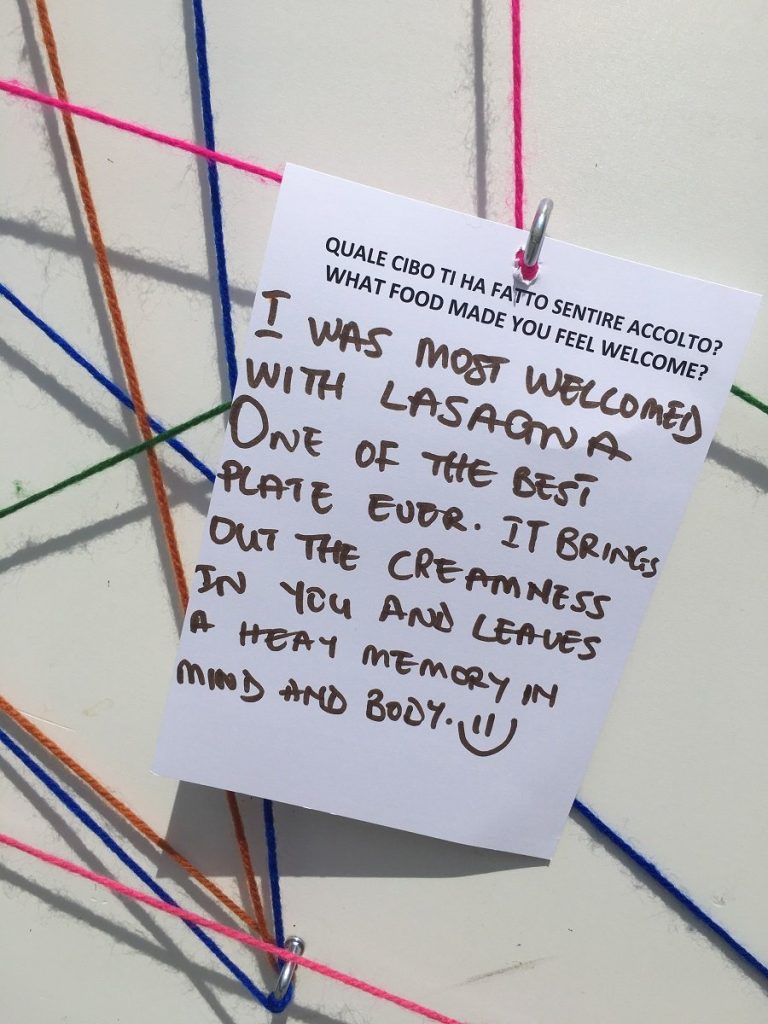 QUALE CIBO TI HA FATTO SENTIRE ACCOLTO?
WHAT FOOD MADE YOU FEEL WELCOME?
I WAS MOST WELLOMED
WITH LASAGNA
ONE OF THE BEST
PLATE EVER. IT BRINGS
OUT THE CREAMNESS
IN YOU AND LEAVES
A HEAY MEMORY IN
MIND AND BODY.